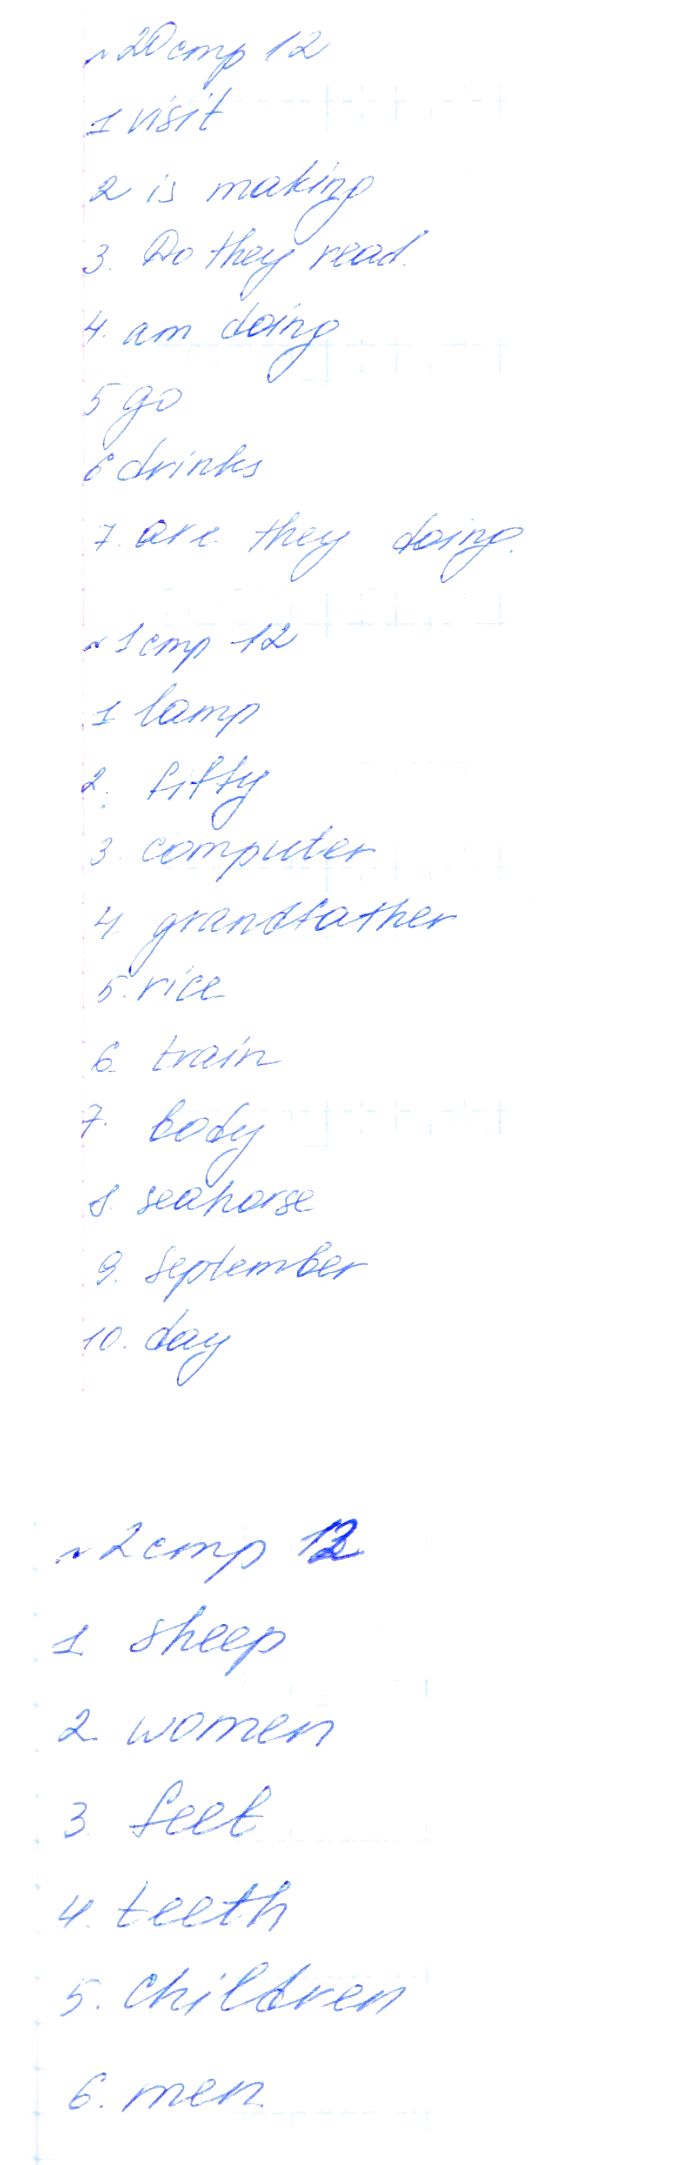 №20 стр 12
1 visit
2 is making
3. Do they read.
4. am doing
5 go
6 drinks
7. are they doing.
№1 стр 12
1 lamp
2. fifty
3. computer
4. grandfather
5. rice
6. train
7. body
8. seahorse
9. September
10. day
№2 стр 12
1. sheep
2. women
3 feet
4. teeth
5. children
6. men